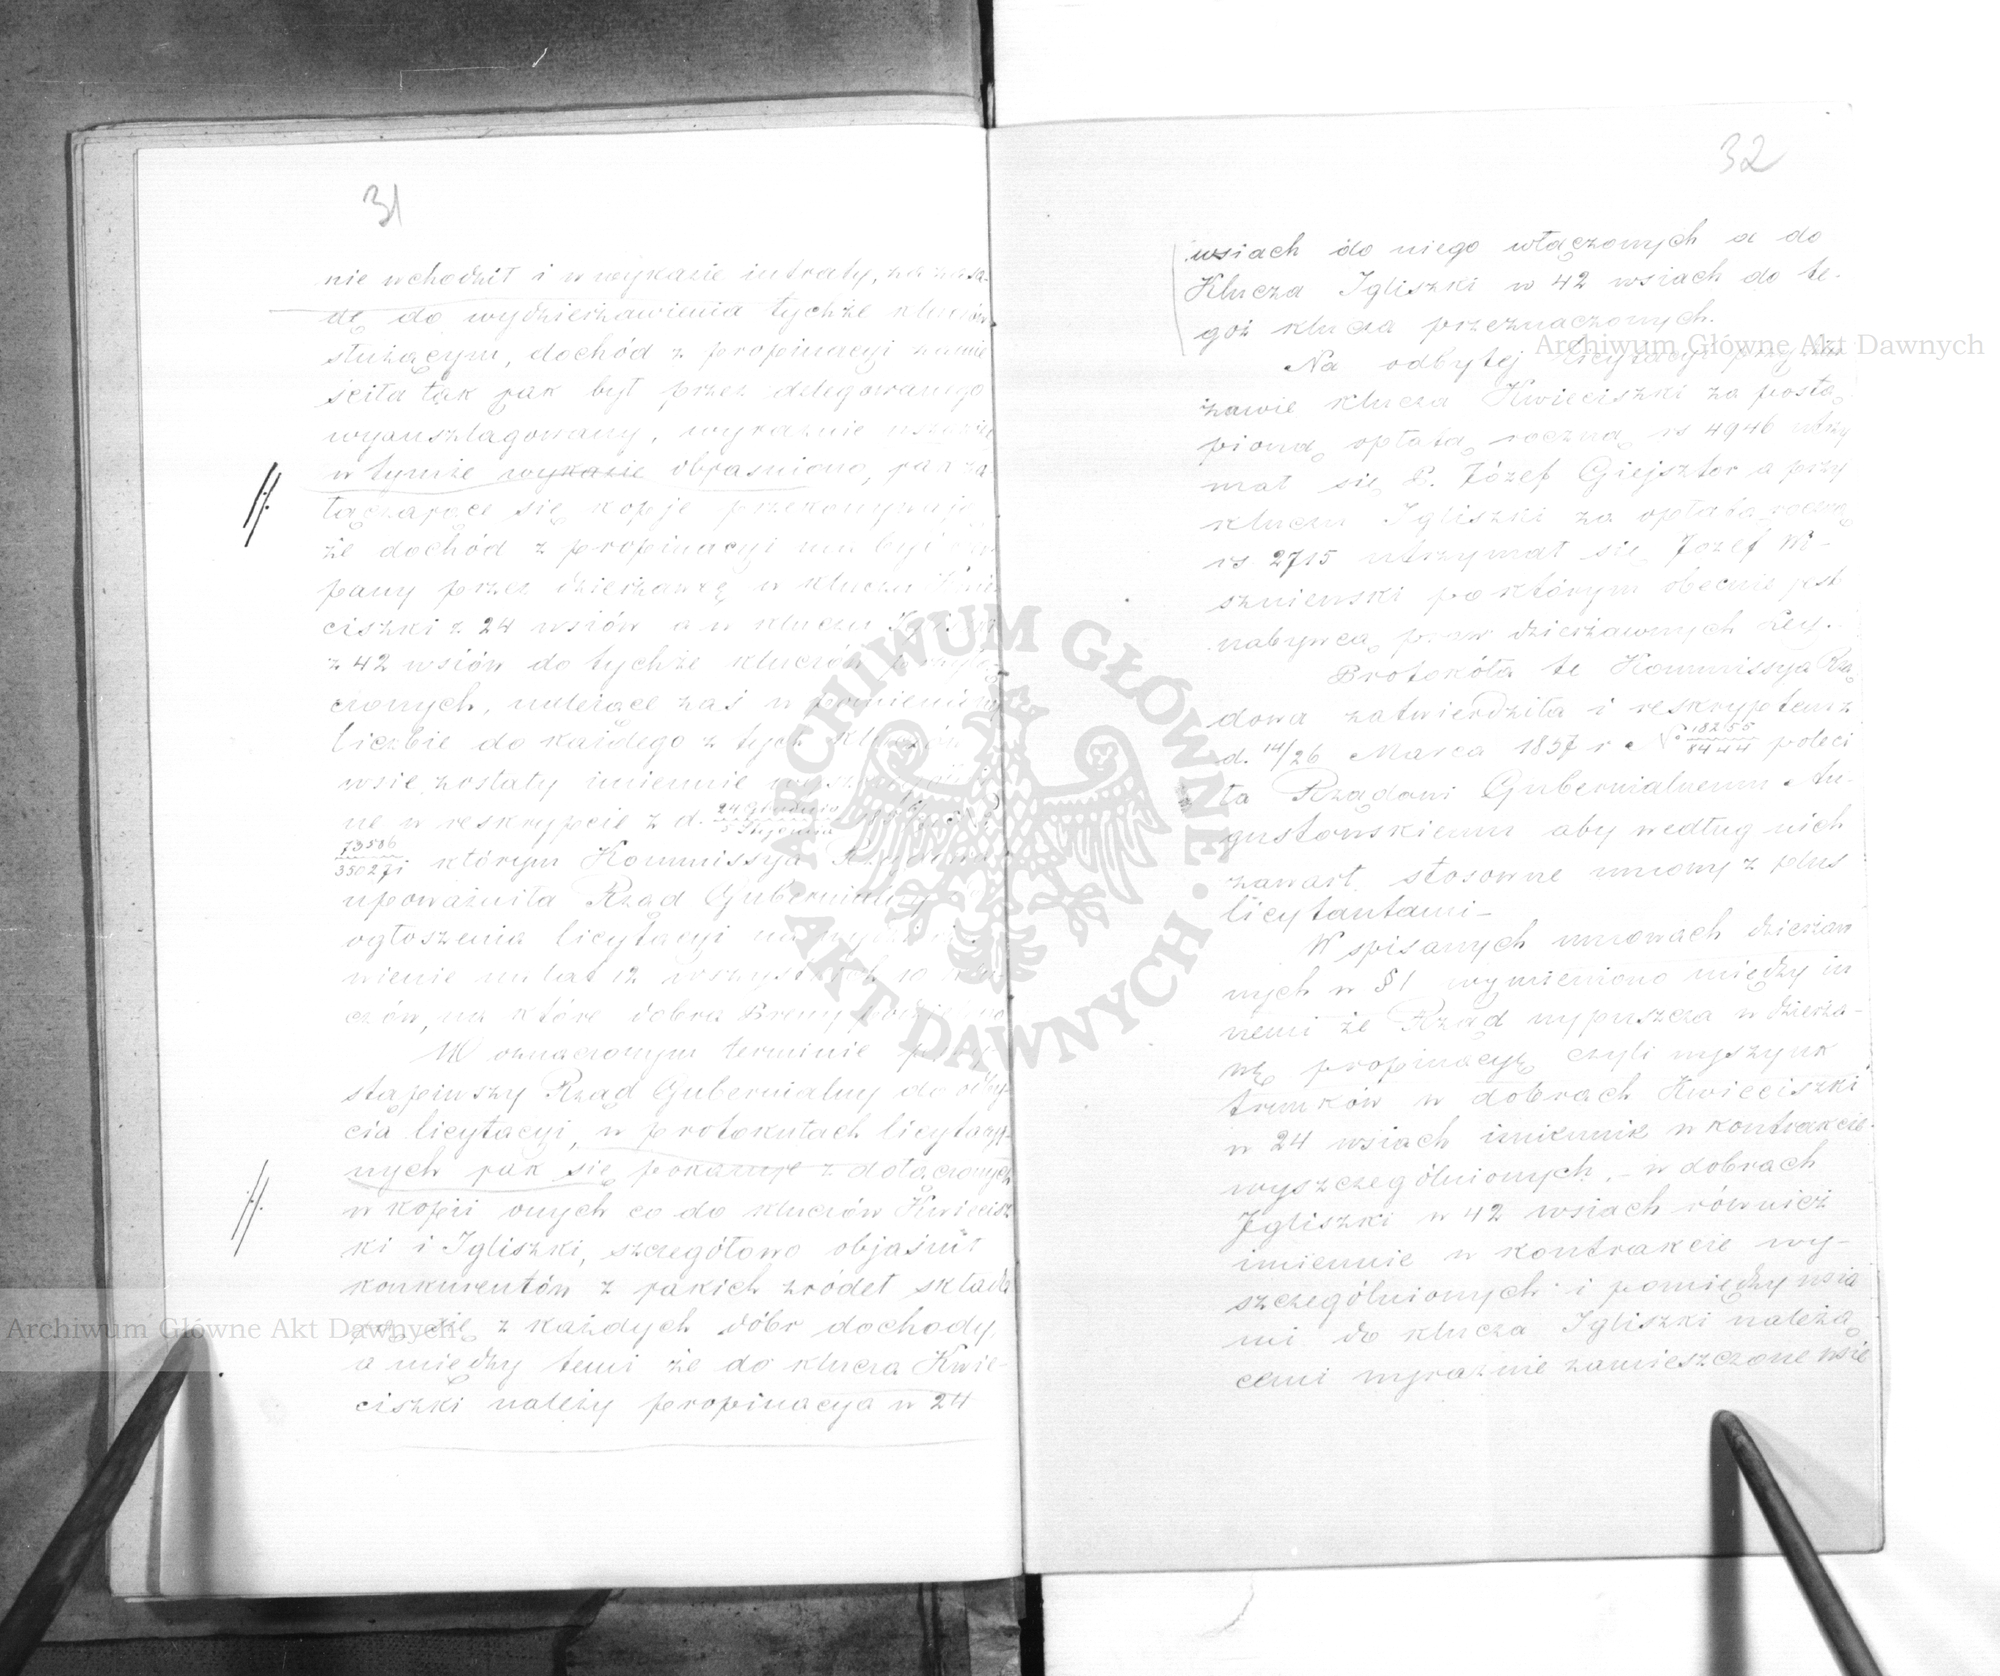 31
nie wchodził i w wykazie intraty, za zasa-
dę do wydzierżawienia tychże kluczów
służącym, dochód z propinacyi zamie
ściła tak jak był przez delegowanego
wyanszlagowany, wyraźnie
w tymże wykazie objaśniono, jak za
łączające się kopje przekonywują
że dochód z propinacyi ma być
pany przez dzierżawcę w kluczu
ciszki z 24 wsiów a w kluczu Igliszki
z 42 wsiów do tychże kluczów
czonych, należące zaś w pomienionej
liczbie do każdego z tych kluczów
wsie zostały imiennie
ne w reskrypcie z d. 24 Grudnia / 5 Stycznia
73506 / 35027 i którym Kommissya Rządowa
upoważniła Rząd Gubernialny do
ogłoszenia licytacyi na wydzierża
wienie na lat 12 wszystkich 10 klu
czów, na które dobra Preny podzielono
W oznaczonym terminie przy
stąpiwszy Rząd Gubernialny do odby
cia licytacyi, w protokułach licytacyj-
nych jak się pokazuje z dołączonych
w kopii onych co do kluczów Kwiecisz
ki i Igliszki, szczegółowo objaśnił
konkurentów z jakich źródeł składa
ją się z każdych dóbr dochody,
a między temi że do klucza Kwie-
ciszki należy propinacya w 24
32
wsiach do niego włączonych a do
Klucza Igliszki w 42 wsiach do te-
goż klucza przeznaczonych.
Na odbytej licytacyi przy
zawie klucza Kwieciszki za postą
pioną opłatą roczną rs 4946 utrzy
mał się P. Józef Giejsztor a przy
kluczu Igliszki za opłatą roczną
rs. 2715 utrzymał się Józef Wi-
szniewski po którym obecnie jest
nabywcą praw dzierżawnych Ley.-
Protokóła te Kommissya Rzą
dowa zatwierdziła i reskryptem z
d. 14/26 Marca 1857 r. N° 18255 / 8444 poleci
ła Rządowi Gubernialnemu Au-
gustowskiemu aby według nich
zawarł stosowne umowy z plus
licytantami -
W spisanych umowach dzierżaw
nych w § 1 wymieniono między in
nemi że Rząd wypuszcza w dzierża-
wę propinacyę czyli wyszynk
trunków w dobrach Kwieciszki
w 24 wsiach imiennie w kontrakcie
wyszczególnionych, - w dobrach
Igliszki w 42 wsiach również
imiennie w kontrakcie wy-
szczególnionych i pomiędzy wsia
mi do klucza Igliszki należą
cemi wyraźnie zamieszczone wsie
Archiwum Główne Akt Dawnych
Archiwum Główne Akt Dawnych
ARCHIWUM GŁÓWNE AKT DAWNYCH